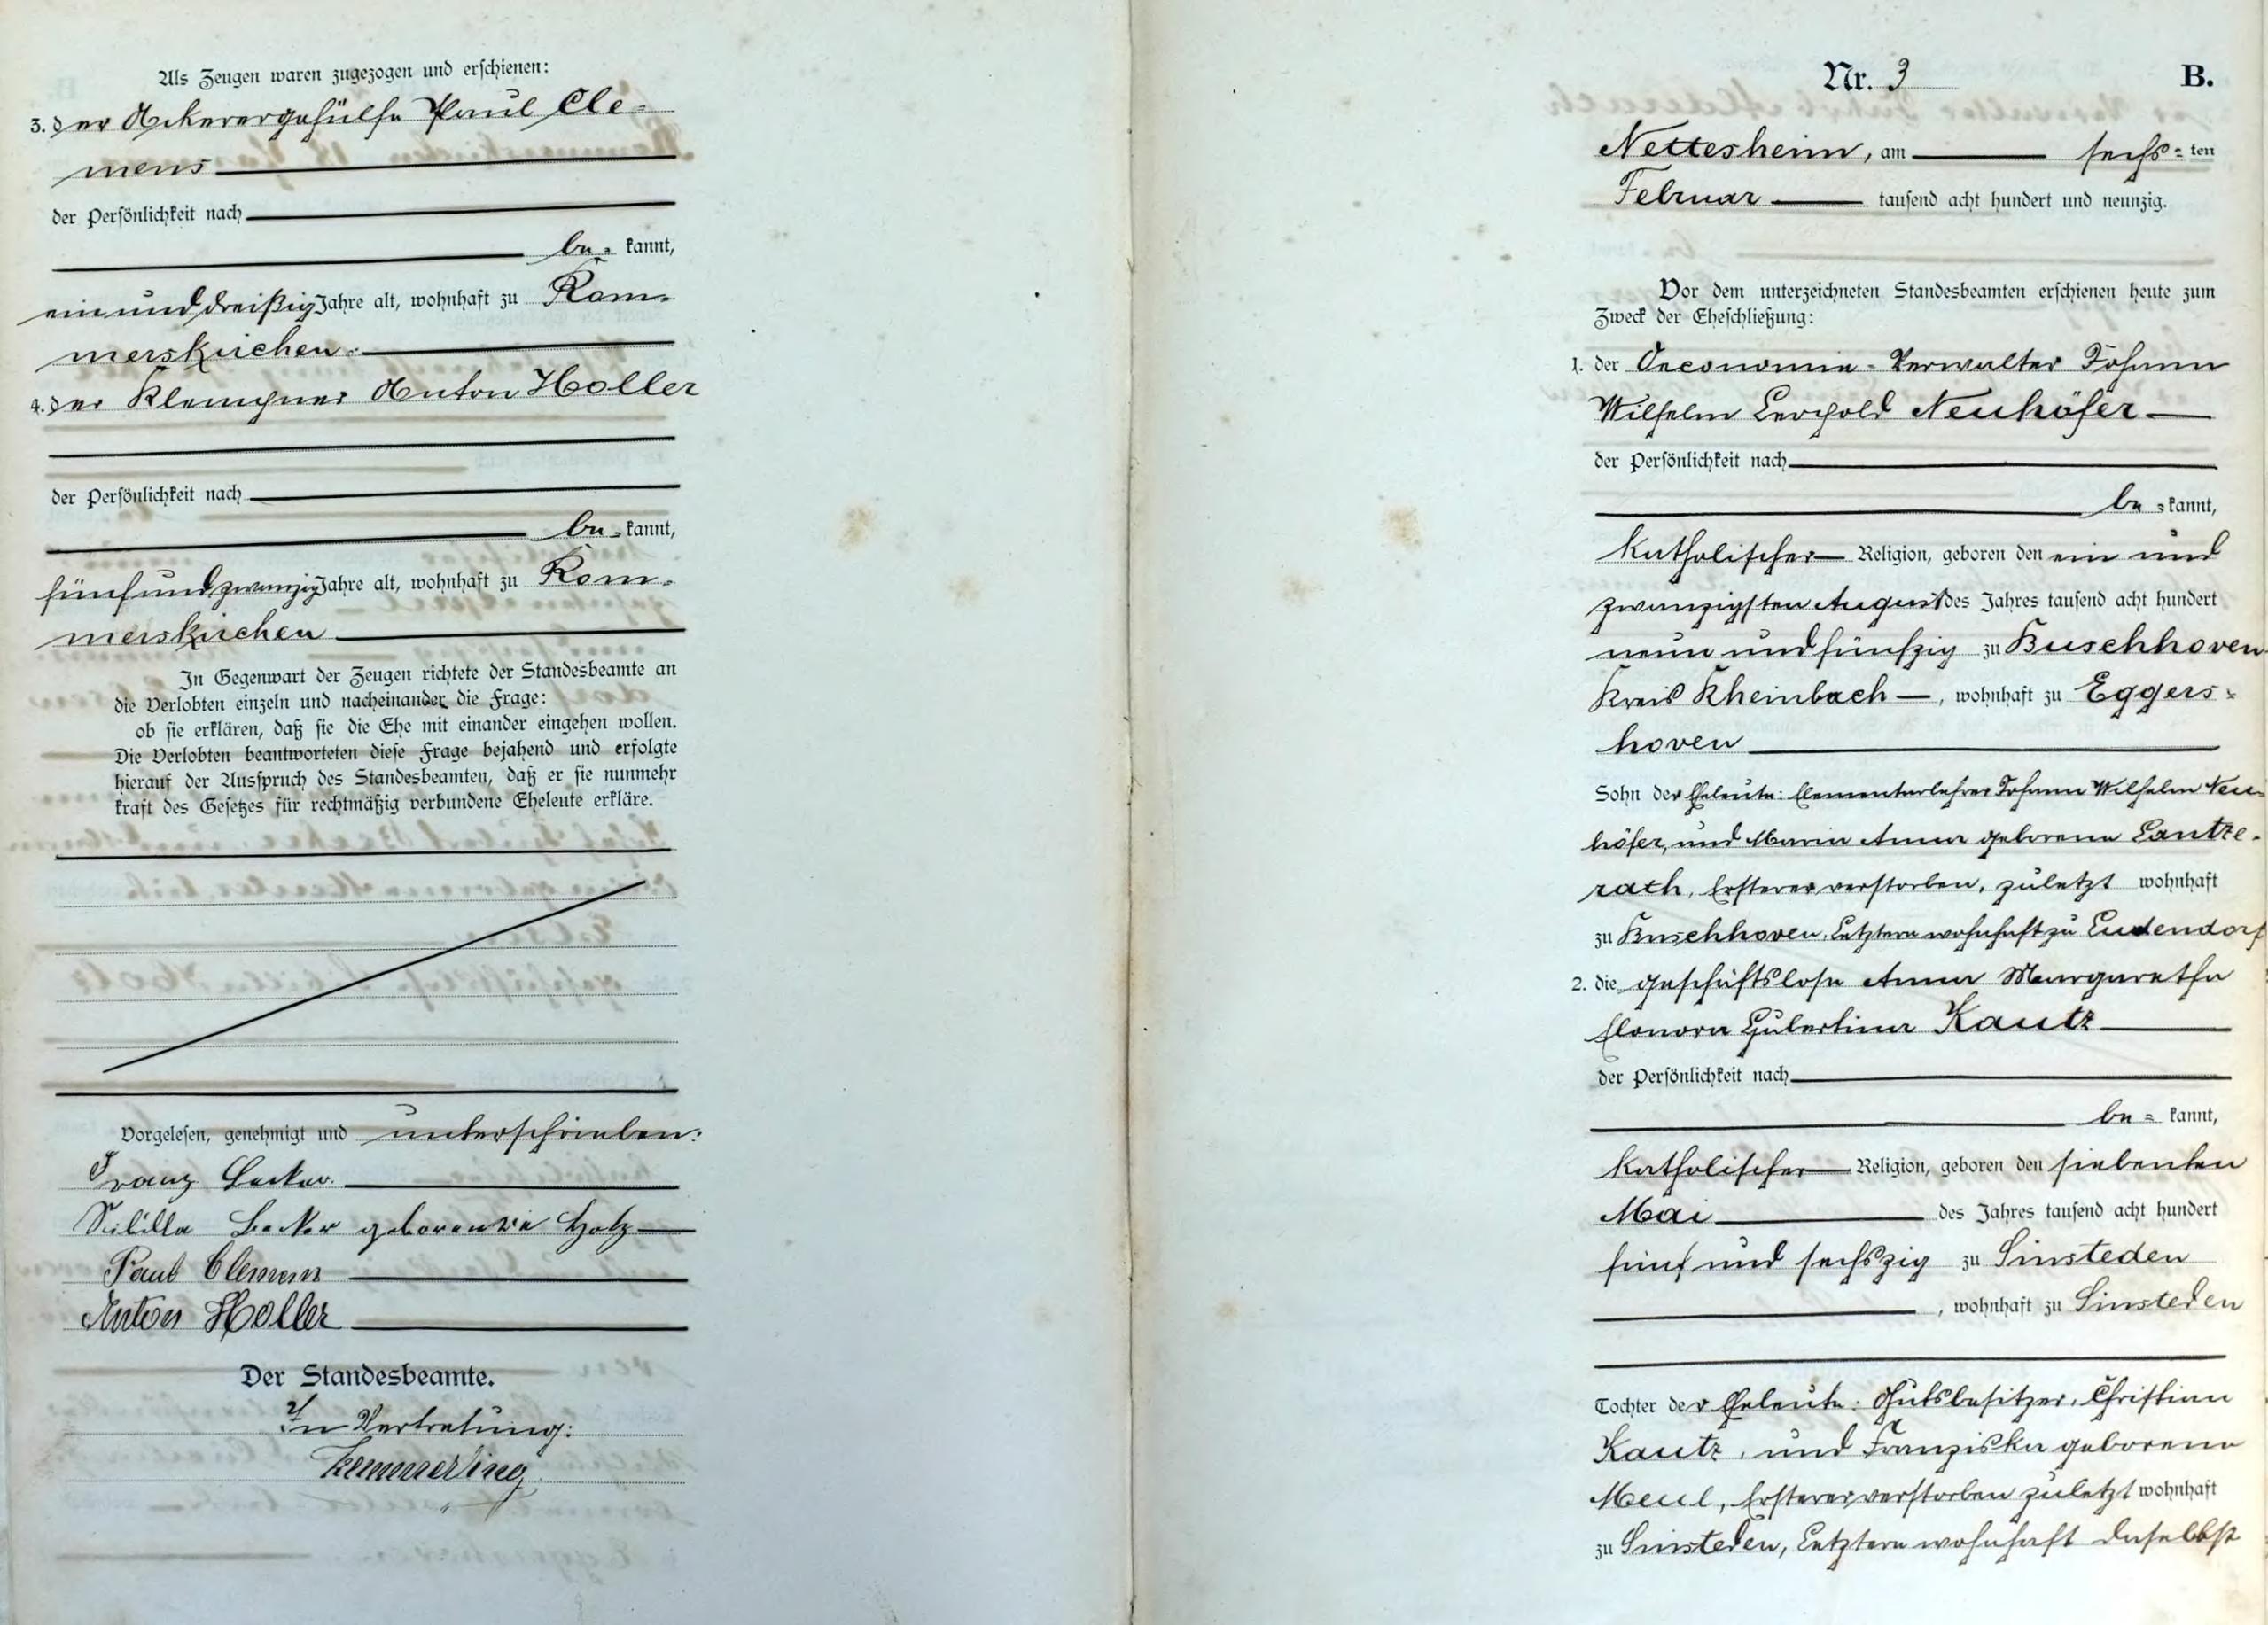 Als Zeugen waren zugezogen und erschienen:
3. der Ackerergehülfe Paul Cle-
mens
der Persönlichkeit nach
be- kannt,
ein und dreißig Jahre alt, wohnhaft zu Rom-
merskirchen.
4. der Klempner Anton Holler
der Persönlichkeit nach
be- kannt,
fünf und zwanzig Jahre alt, wohnhaft zu Rom-
merskirchen
In Gegenwart der Zeugen richtete der Standesbeamte an
die Verlobten einzeln und nacheinander die Frage:
ob sie erklären, daß sie die Ehe mit einander eingehen wollen.
Die Verlobten beantworteten diese Frage bejahend und erfolgte
hierauf der Ausspruch des Standesbeamten, daß er sie nunmehr
kraft des Gesetzes für rechtmäßig verbundene Eheleute erkläre.
Vorgelesen, genehmigt und unterschrieben:
Franz Becker.
Sibilla Becker geborene Holz
Paul Clemens
Anton Holler
Der Standesbeamte.
In Vertretung:
Kemmerling
Nr. 3 B.
Nettesheim, am sechs- ten
Februar tausend acht hundert und neunzig.
Vor dem unterzeichneten Standesbeamten erschienen heute zum
Zweck der Eheschließung:
1. der Oeconomie-Verwalter Johann
Wilhelm Leopold Neuhöfer
der Persönlichkeit nach
be- kannt,
katholischer Religion, geboren den ein und
zwanzigsten August des Jahres tausend acht hundert
neun und fünfzig zu Buschhoven
Kreis Rheinbach, wohnhaft zu Eggers-
hoven
Sohn der Eheleute: Elementarlehrer Johann Wilhelm Neu-
höfer, und Maria Anna geborene Lantze-
rath, Ersterer verstorben, zuletzt wohnhaft
zu Buschhoven, Letztere wohnhaft zu Endendorf
2. die geschäftslose Anna Margaretha
Elonora Hubertina Kautz
der Persönlichkeit nach
be- kannt,
katholischer Religion, geboren den siebenten
Mai des Jahres tausend acht hundert
fünf und sechszig zu Sinsteden
, wohnhaft zu Sinsteden
Tochter der Eheleute: Gutsbesitzer, Christian
Kautz, und Franziska geborene
Meul, Ersterer verstorben zuletzt wohnhaft
zu Sinsteden, Letztere wohnhaft daselbst